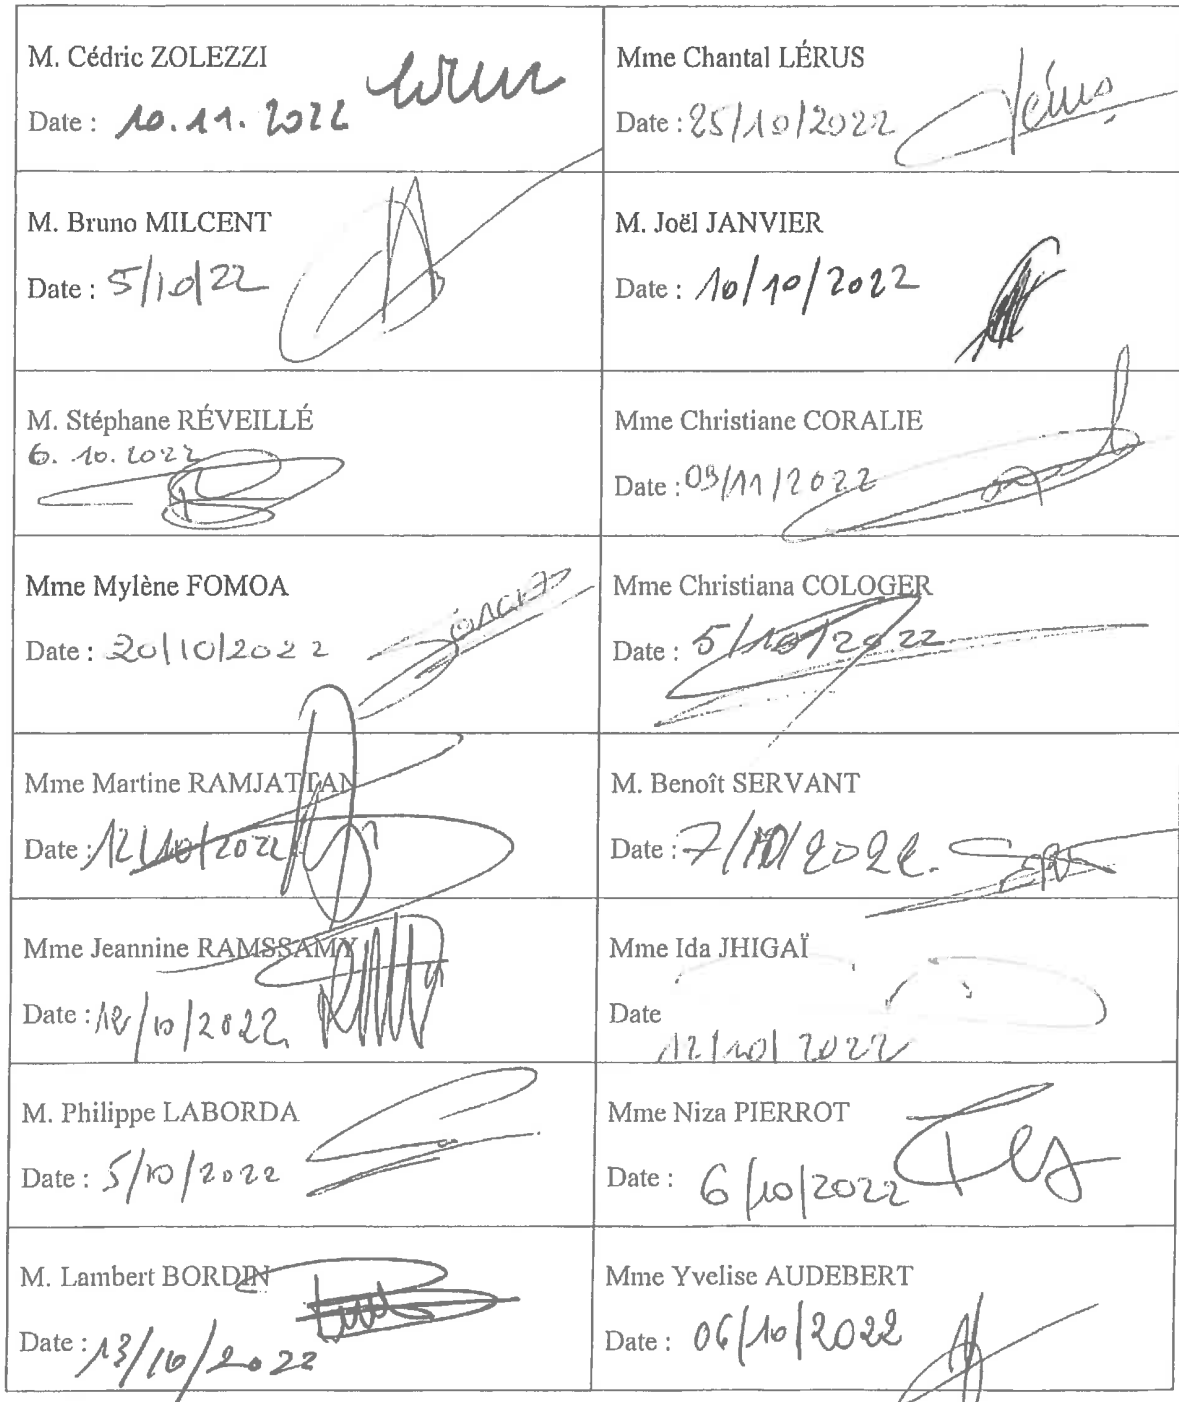 M. Cédric ZOLEZZI
Date : 10.11.2022
Mme Chantal LÉRUS
Date : 25/10/2022
Lérus
M. Bruno MILCENT
Date : 5/10/22
M. Joël JANVIER
Date : 10/10/2022
M. Stéphane RÉVEILLÉ
6. 10. 2022
Mme Christiane CORALIE
Date : 09/11/2022
Mme Mylène FOMOA
Date : 20/10/2022
Mme Christiana COLOGER
Date : 5/10/2022
Mme Martine RAMJATTAN
Date : 12/10/2022
M. Benoît SERVANT
Date : 7/10/2022.
Mme Jeannine RAMSSAMY
Date : 12/10/2022
Mme Ida JHIGAÏ
Date
12/10/2022
M. Philippe LABORDA
Date : 5/10/2022
Mme Niza PIERROT
Date : 6/10/2022
M. Lambert BORDIN
Date : 13/10/2022
Mme Yvelise AUDEBERT
Date : 06/10/2022